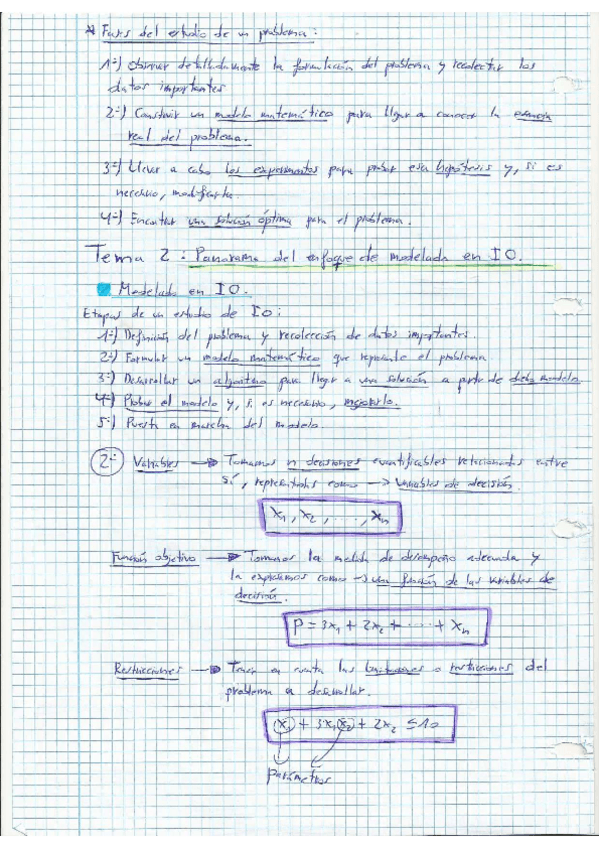 * Fases del estudio de un problema:
1º-) Observar detalladamente la formulación del problema y recolectar los
datos importantes
2º-) Construir un modelo matemático para llegar a conocer la esencia
real del problema.
3º-) Llevar a cabo los experimentos para probar esa hipótesis y, si es
necesario, modificarla.
4º-) Encontrar una solución óptima para el problema.
Tema 2: Panorama del enfoque de modelado en IO.
Modelado en IO.
Etapas de un estudio de IO:
1º-) Definición del problema y recolección de datos importantes.
2º-) Formular un modelo matemático que represente el problema
3º-) Desarrollar un algoritmo para llegar a una solución a partir de dicho modelo.
4º-) Probar el modelo y, si es necesario, mejorarlo.
5º-) Puesta en marcha del modelo.
2º- Variables → Tomamos n decisiones cuantificables relacionadas entre
sí, representadas como → variables de decisión.
x₁, x₂, ....., xₙ
Función objetivo → Tomamos la medida de desempeño adecuada y
la expresamos como → una función de las variables de
decisión.
P = 3x₁ + 2x₂ + ..... + xₙ
Restricciones → Tener en cuenta las limitaciones o restricciones del
problema a desarrollar.
x₁ + 3x₁x₂ + 2x₂ ≤ 10
Parámetros